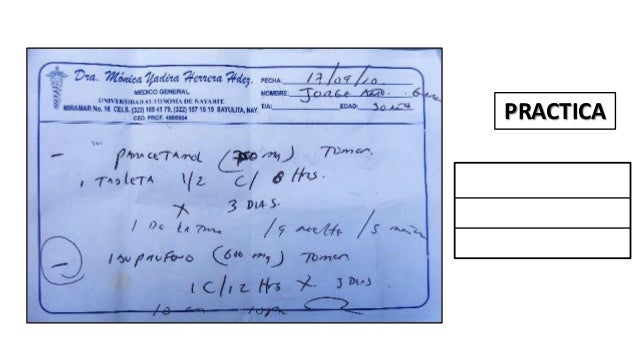 Dra. Mónica Yadira Herrera Hdez.
MEDICO GENERAL
UNIVERSIDAD AUTONOMA DE NAYARIT.
MIRAMAR No. 16 CELS. (322) 109 41 79, (322) 157 16 19 BAYULITA, NAY.
CED. PROF. 4908954
FECHA: 17/09/10
NOMBRE: JORGE
T/A: EDAD: 30 años
- PARACETAMOL (750 mg) Tomar.
1 TABLETA 1/2 C/ 8 Hrs.
X 3 DIAS.
1 De la /9 noche /5
- IBUPROFENO (600 mg) Tomar
1 C/12 Hrs X 3 Dias
10 am 10 pm
PRACTICA